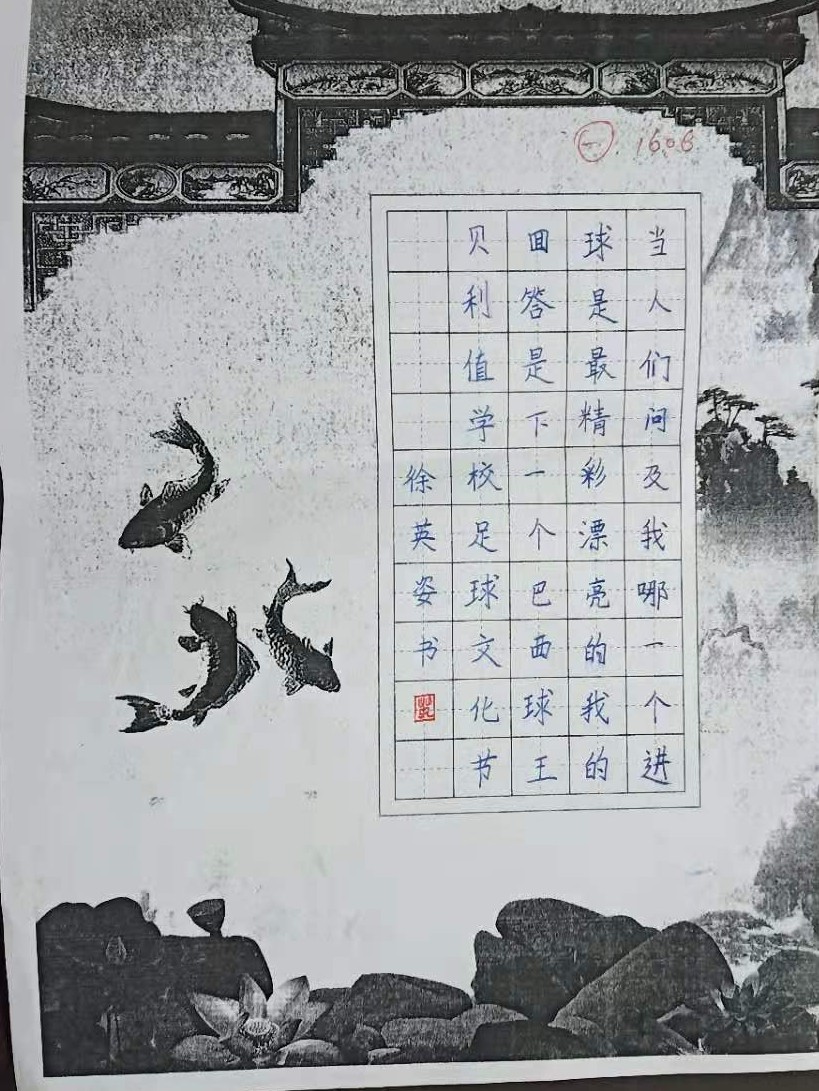 一. 1606
当人们问及我哪一个进
球是最精彩漂亮的我的
回答是下一个巴西球王
贝利值学校足球文化节
徐英姿书